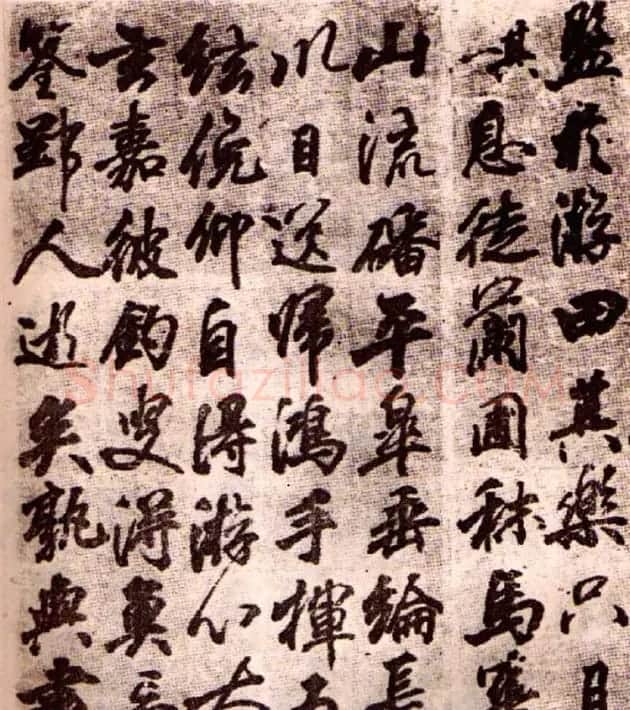 盤於游田其樂只且
其息徒蘭圃秣馬華
山流磻平皋垂綸長
川目送歸鴻手揮五
絃俛仰自得游心太
玄嘉彼釣叟得魚忘
筌郢人逝矣孰與盡
Shufaziliao.COM